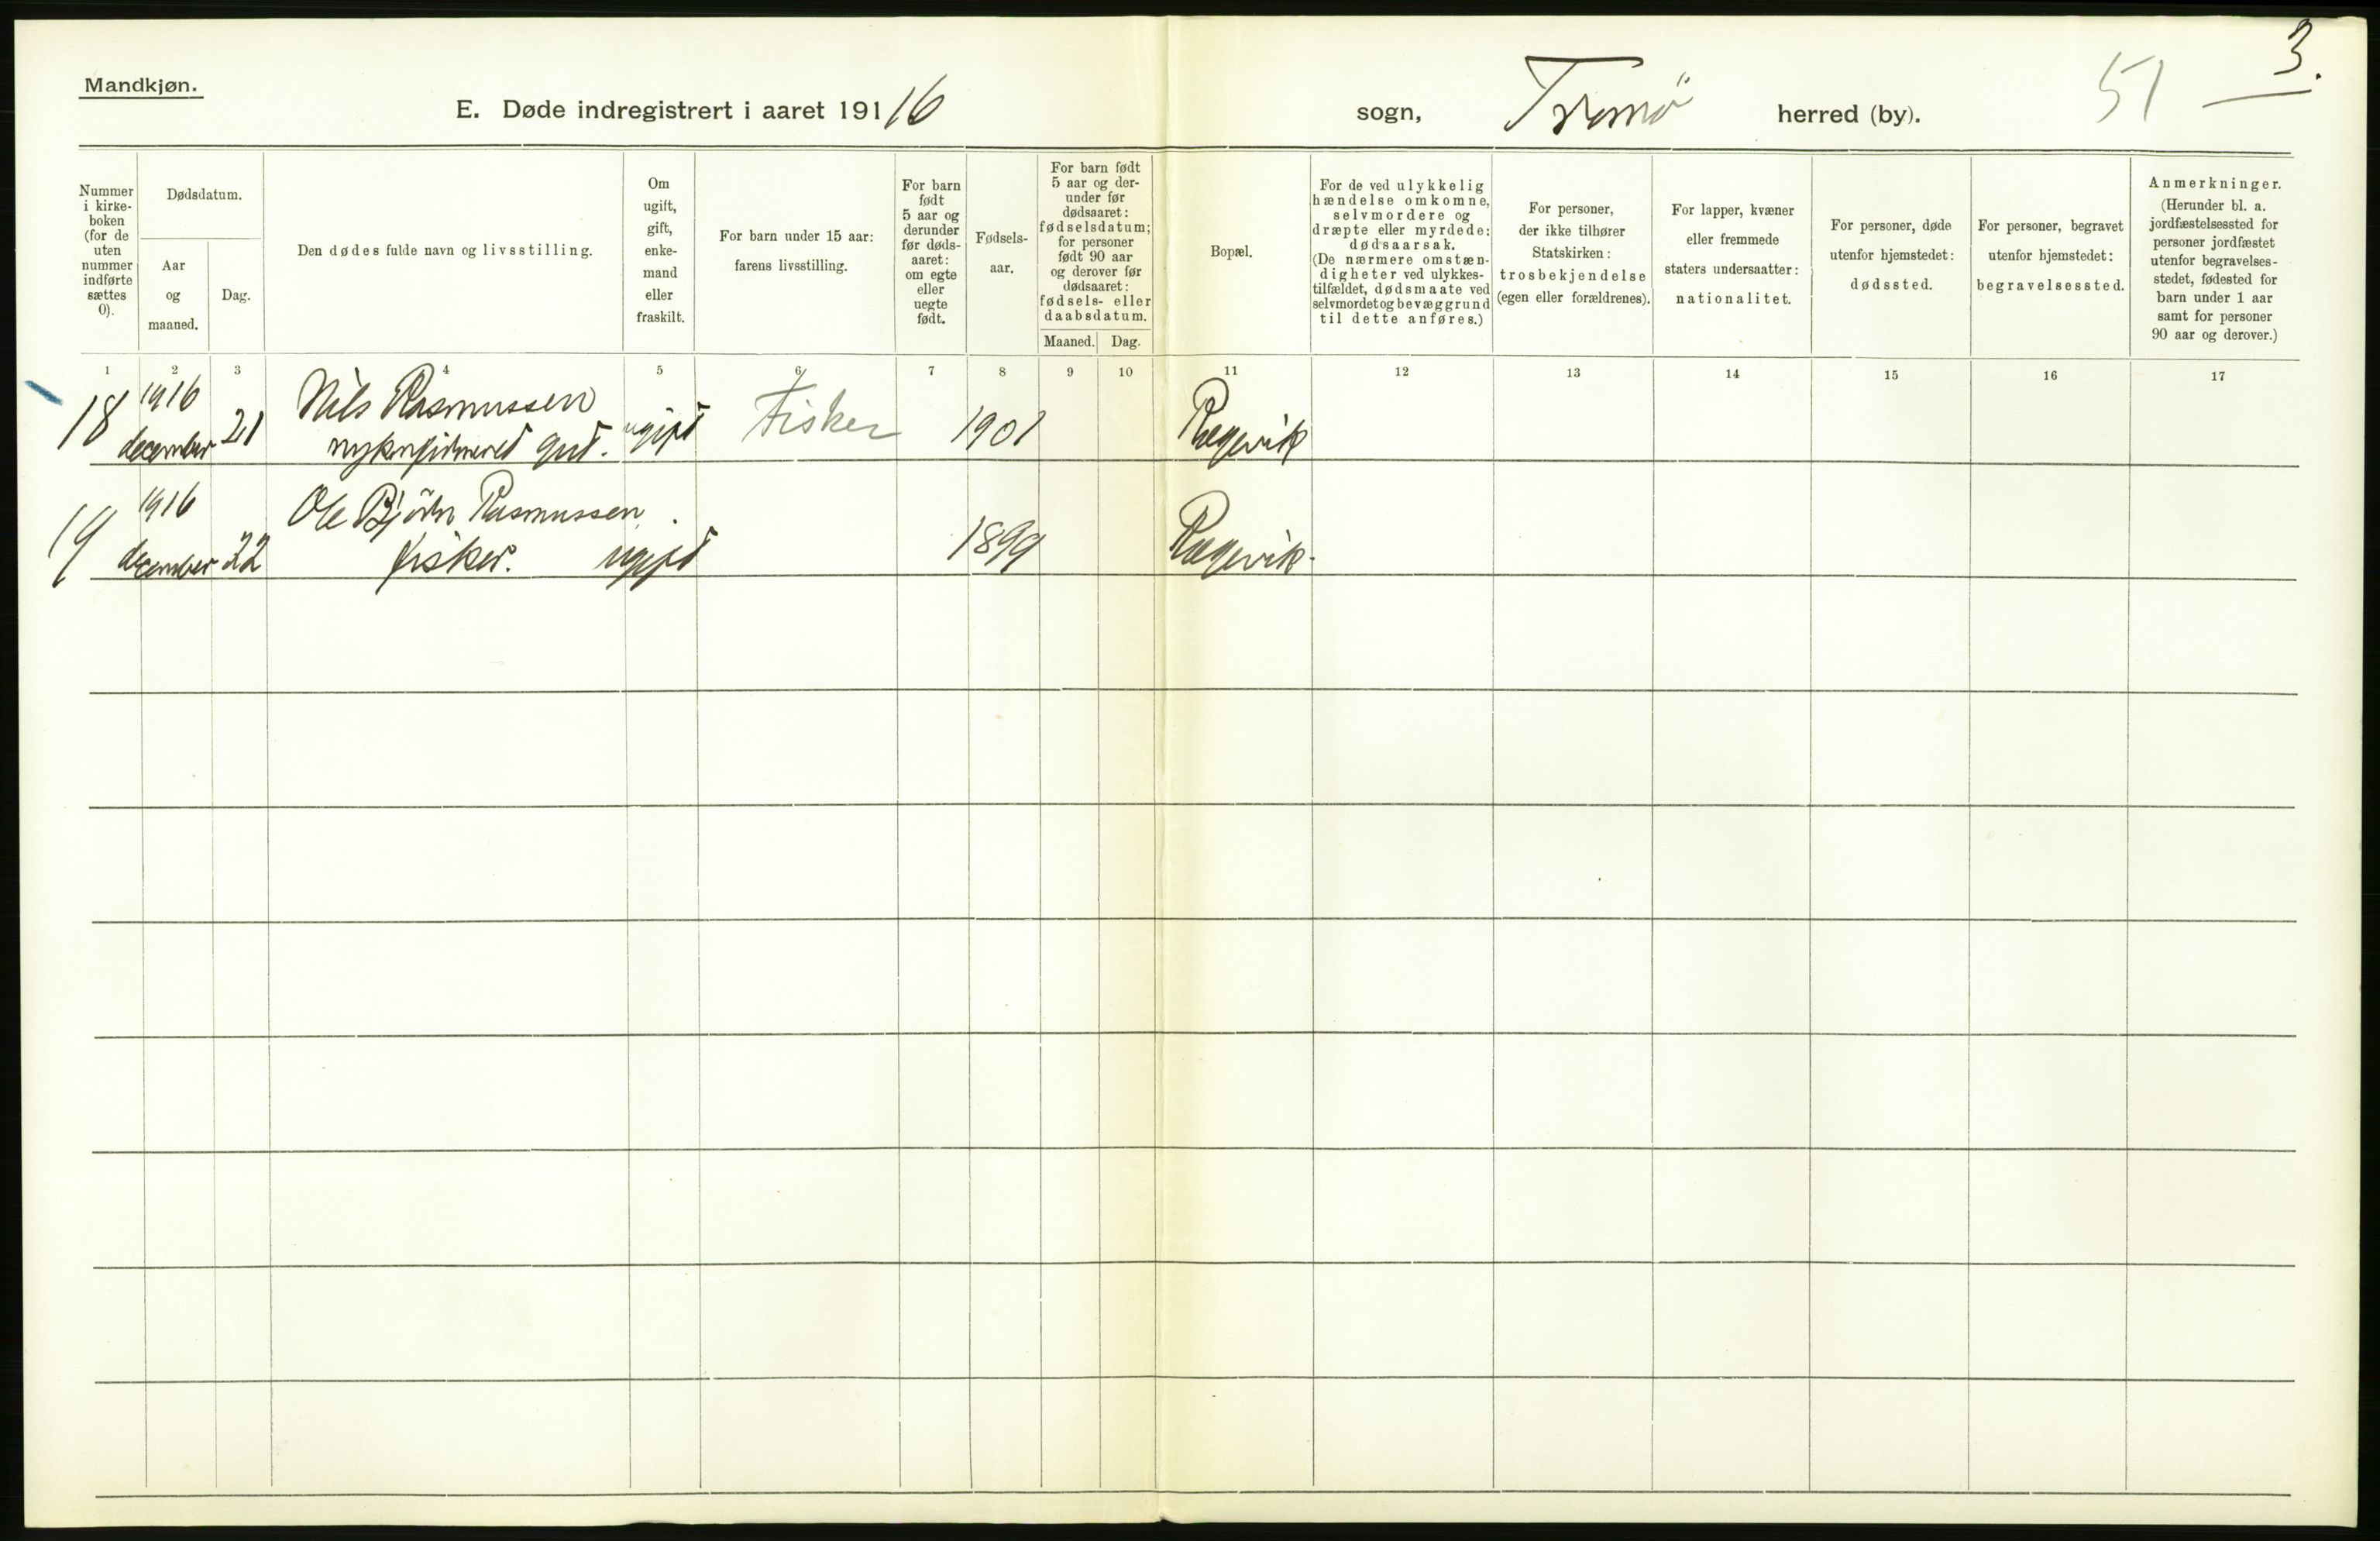 Mandkjøn.
E. Døde indregistrert i aaret 19116 sogn, Tromø herred (by). 51 3.
Nummer i kirkeboken (for de uten nummer indførte sættes 0).
Dødsdatum.
Aar og maaned.
Dag.
Den dødes fulde navn og livsstilling.
Om ugift, gift, enkemand eller fraskilt.
For barn under 15 aar: farens livsstilling.
For barn født 5 aar og derunder før dødsaaret: om egte eller uegte født.
Fødselsaar.
For barn født 5 aar og derunder før dødsaaret: fødselsdatum; for personer født 90 aar og derover før dødsaaret: fødsels- eller daabsdatum.
Maaned. Dag.
Bopæl.
For de ved ulykkelig hændelse omkomne, selvmordere og dræpte eller myrdede: dødsaarsak. (De nærmere omstændigheter ved ulykkestilfældet, dødsmaate ved selvmordet og bevæggrund til dette anføres.)
For personer, der ikke tilhører Statskirken: trosbekjendelse (egen eller forældrenes).
For lapper, kvæner eller fremmede staters undersaatter: nationalitet.
For personer, døde utenfor hjemstedet: dødssted.
For personer, begravet utenfor hjemstedet: begravelsessted.
Anmerkninger. (Herunder bl. a. jordfæstelsessted for personer jordfæstet utenfor begravelsesstedet, fødested for barn under 1 aar samt for personer 90 aar og derover.)
1 2 3 4 5 6 7 8 9 10 11 12 13 14 15 16 17
1916 Nils Rasmussen
18 december 21 nykonfirmeret gut. ugift Fisker 1901
1916 Ole Bjørn Rasmussen
19 december 22 fisker. ugift 1899